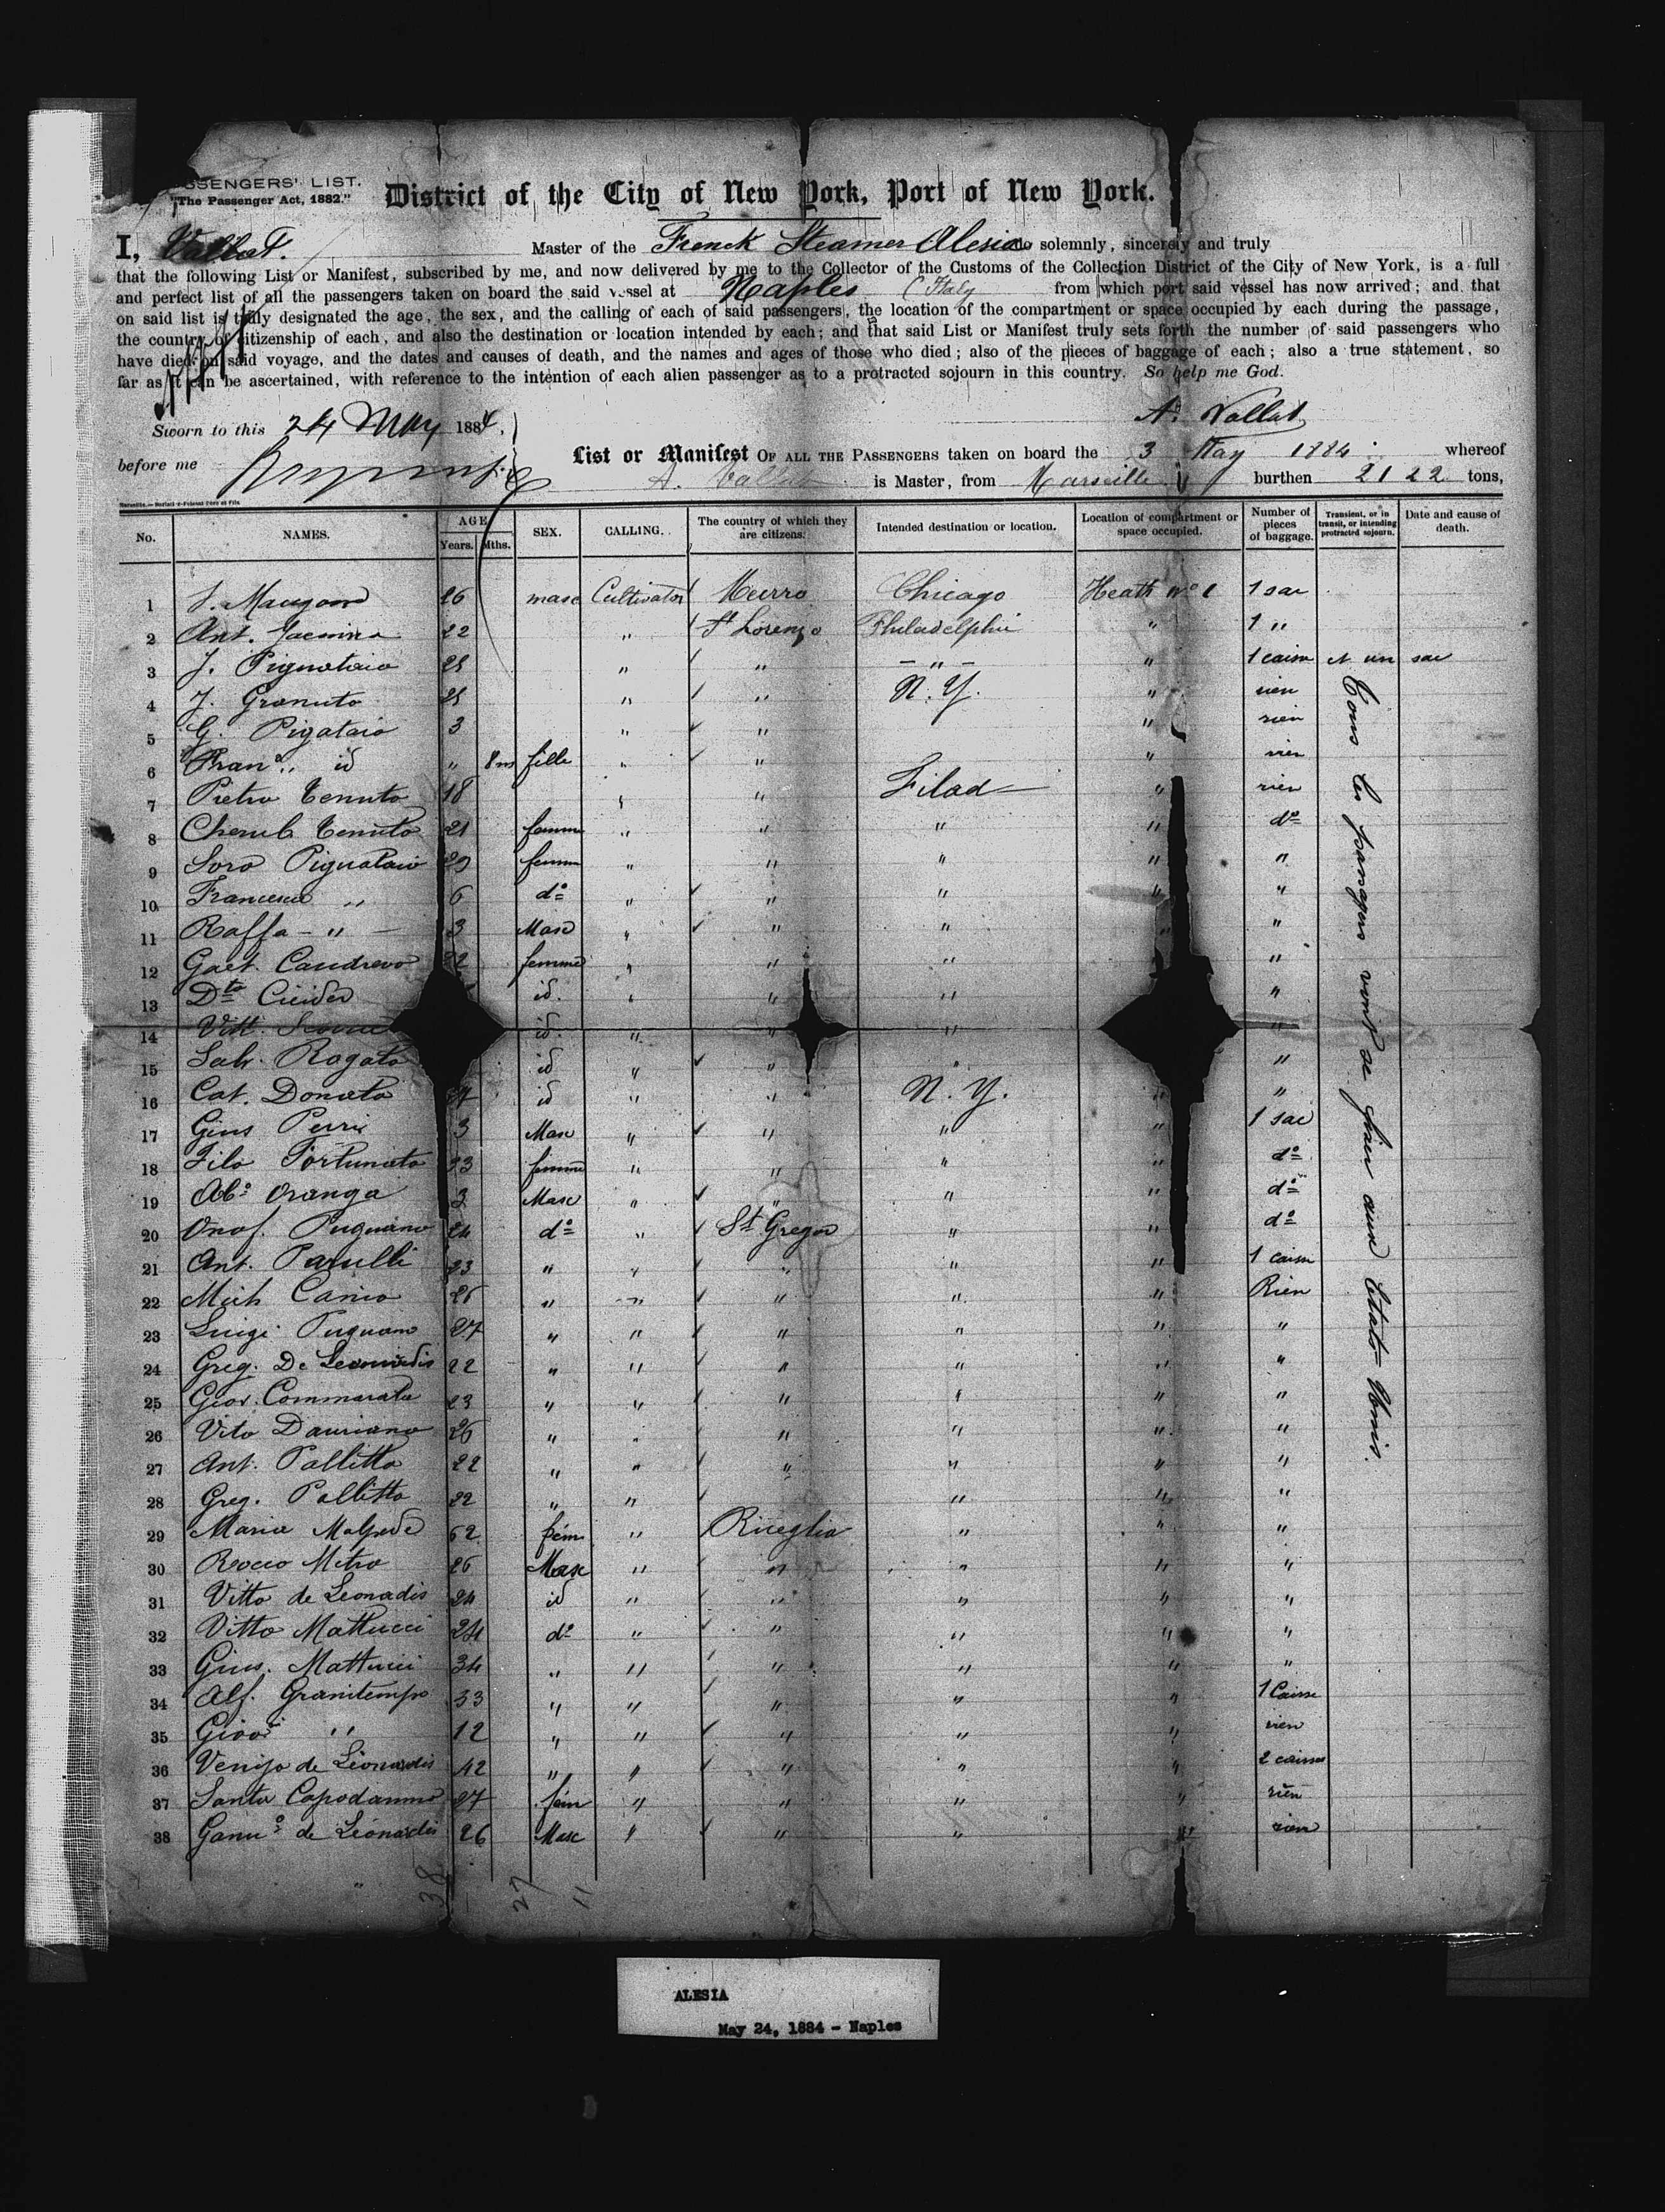 SSENGERS' LIST.
"The Passenger Act, 1882."
District of the City of New York, Port of New York.
I, Vallat. Master of the French Steamer Alesia do solemnly, sincerely and truly
that the following List or Manifest, subscribed by me, and now delivered by me to the Collector of the Customs of the Collection District of the City of New York, is a full
and perfect list of all the passengers taken on board the said vessel at Naples (Italy from which port said vessel has now arrived; and that
on said list is truly designated the age, the sex, and the calling of each of said passengers, the location of the compartment or space occupied by each during the passage,
the country of citizenship of each, and also the destination or location intended by each; and that said List or Manifest truly sets forth the number of said passengers who
have died on said voyage, and the dates and causes of death, and the names and ages of those who died; also of the pieces of baggage of each; also a true statement, so
far as it can be ascertained, with reference to the intention of each alien passenger as to a protracted sojourn in this country. So help me God.
Sworn to this 24 May 1884. A. Vallat
before me
List or Manifest OF ALL THE PASSENGERS taken on board the 3 May 1884 whereof
A. Vallat is Master, from Marseille burthen 2122 tons,
No. NAMES. AGE Years. Mths. SEX. CALLING. The country of which they are citizens. Intended destination or location. Location of compartment or space occupied. Number of pieces of baggage. Transient, or in transit, or intending protracted sojourn. Date and cause of death.
1 26 masc Cultivator Chicago 1 sac
2 Ant. 22 " St Lorenzo Philadelphie " 1 "
3 J. Pignataio " " - " - " 1 caisse et un sac
4 J. Granuto " " N. Y. " rien
5 G. Pigataio 3 " " " rien
6 Fran " id " 8 m fille " " " rien
7 Pietro Tenuto 18 " " Filad " rien
8 Cherub Tenuto 21 femme " " " " do
9 Soro Pignataio 29 femm " " " " "
10 Francesca " 6 do " " " " "
11 Raffa - " - 3 Masc " " " " "
12 Gaet. Caudrevo femme " " " "
13 id. " " " "
14 Vitt. id. " " " "
15 Salv. Rogato id " " " "
16 Cat. Donato id " " N. Y. " "
17 Gius Perri 3 Masc " " " " 1 sac
18 Filo Fortunato 23 femme " " " " do
19 Oranga 3 Masc " " " " do
20 Onof. Pugnano 24 do " St Gregor " " do
21 Ant. Parulli 23 " " " " " 1 caisse
22 Mich Canio 26 " " " " " Rien
23 Luigi Pugnano 27 " " " " " "
24 Greg. De Leonardis 22 " " " " " "
25 Giov. Commarata 23 " " " " " "
26 Vito Dauriano 26 " " " " " "
27 Ant. Pallitto 22 " " " " " "
28 Greg. Pallitto 22 " " " " " "
29 Maria Malfede 62 fém " Riceglia " " "
30 Rocco Mitro 26 Masc " " " " "
31 Vitto de Leonadis 24 id " " " " "
32 Vitto Mattucci 24 do " " " " "
33 Gius. Mattucci 34 " " " " " "
34 Alf. Granitempo 33 " " " " " 1 Caisse
35 Giov " 12 " " " " " rien
36 de Léonardis 42 " " " " " 2 caisses
37 Santa Capodanno 27 fém " " " " rien
38 de Léonardis 26 Masc " " " " rien
Tous les passagers vont se fixer aux Etats-Unis.
38 27 11
ALESIA
May 24, 1884 - Naples